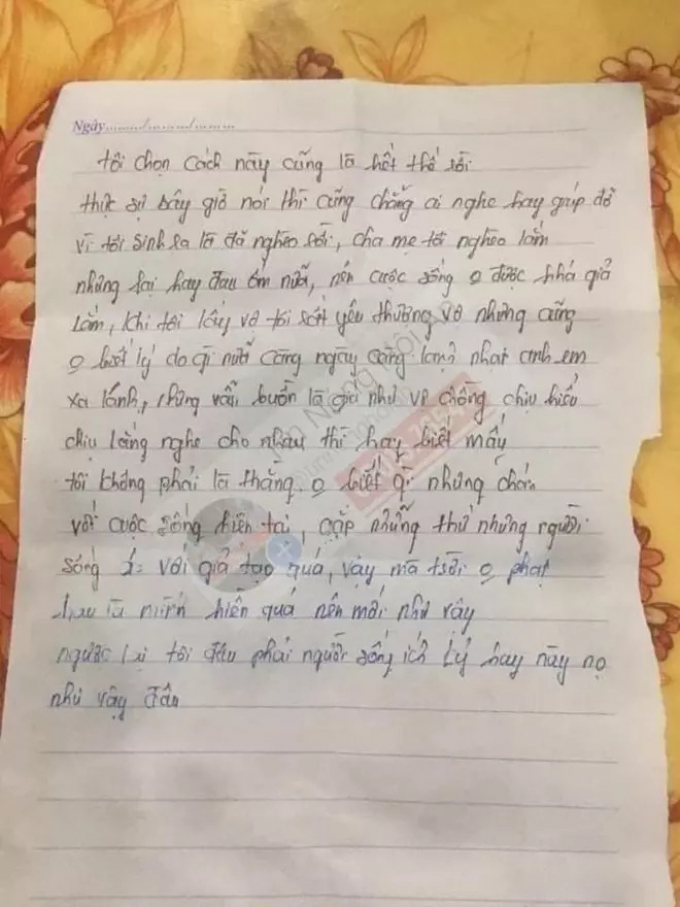 Ngày......./............/..............
tôi chọn cách này cũng là hết thể rồi
thực sự bây giờ nói thì cũng chẳng ai nghe hay giúp đỡ
vì tôi sinh ra là đã nghèo rồi, cha mẹ tôi nghèo lắm
nhưng lại hay đau ốm nữa, nên cuộc sống o được khá giả
lắm, khi tôi lấy vợ tôi rất yêu thượng vợ nhưng cũng
o biết lý do gì nữa càng ngày càng lạnh nhạt anh em
xa lánh, những vẫn buồn là giá như vợ chồng chịu hiểu
chịu lắng nghe cho nhau thì hay biết mấy
tôi không phải là thằng o biết gì nhưng chán
với cuộc sống hiện tại, gặp những thứ những người
sống với giả tạo quá, vậy mà trời o phạt
hay là mình hiền quá nên mới như vậy
ngược lại tôi đâu phải người sống ích kỷ hay này nọ
như vậy đâu